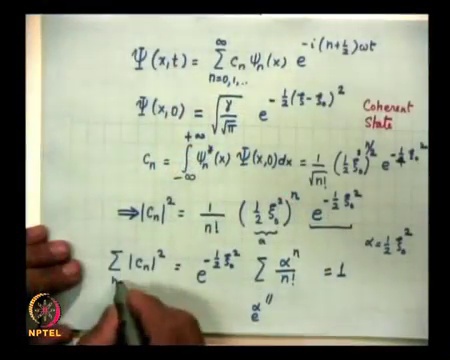 Ψ(x,t) = ∑_{n=0,1,..}^{∞} c_n ψ_n(x) e^{-i(n+½)ωt}
Ψ(x,0) = √(γ/√π) e^{-½(ξ-ξ₀)²}
Coherent
State
c_n = ∫_{-∞}^{+∞} ψ_n*(x) Ψ(x,0)dx = 1/√n! (½ξ₀²)^{n/2} e^{-¼ξ₀²}
⇒|c_n|² = 1/n! (½ξ₀²)^n e^{-½ξ₀²}
α α=½ξ₀²
∑_n |c_n|² = e^{-½ξ₀²} ∑ αⁿ/n! = 1
e^α
NPTEL